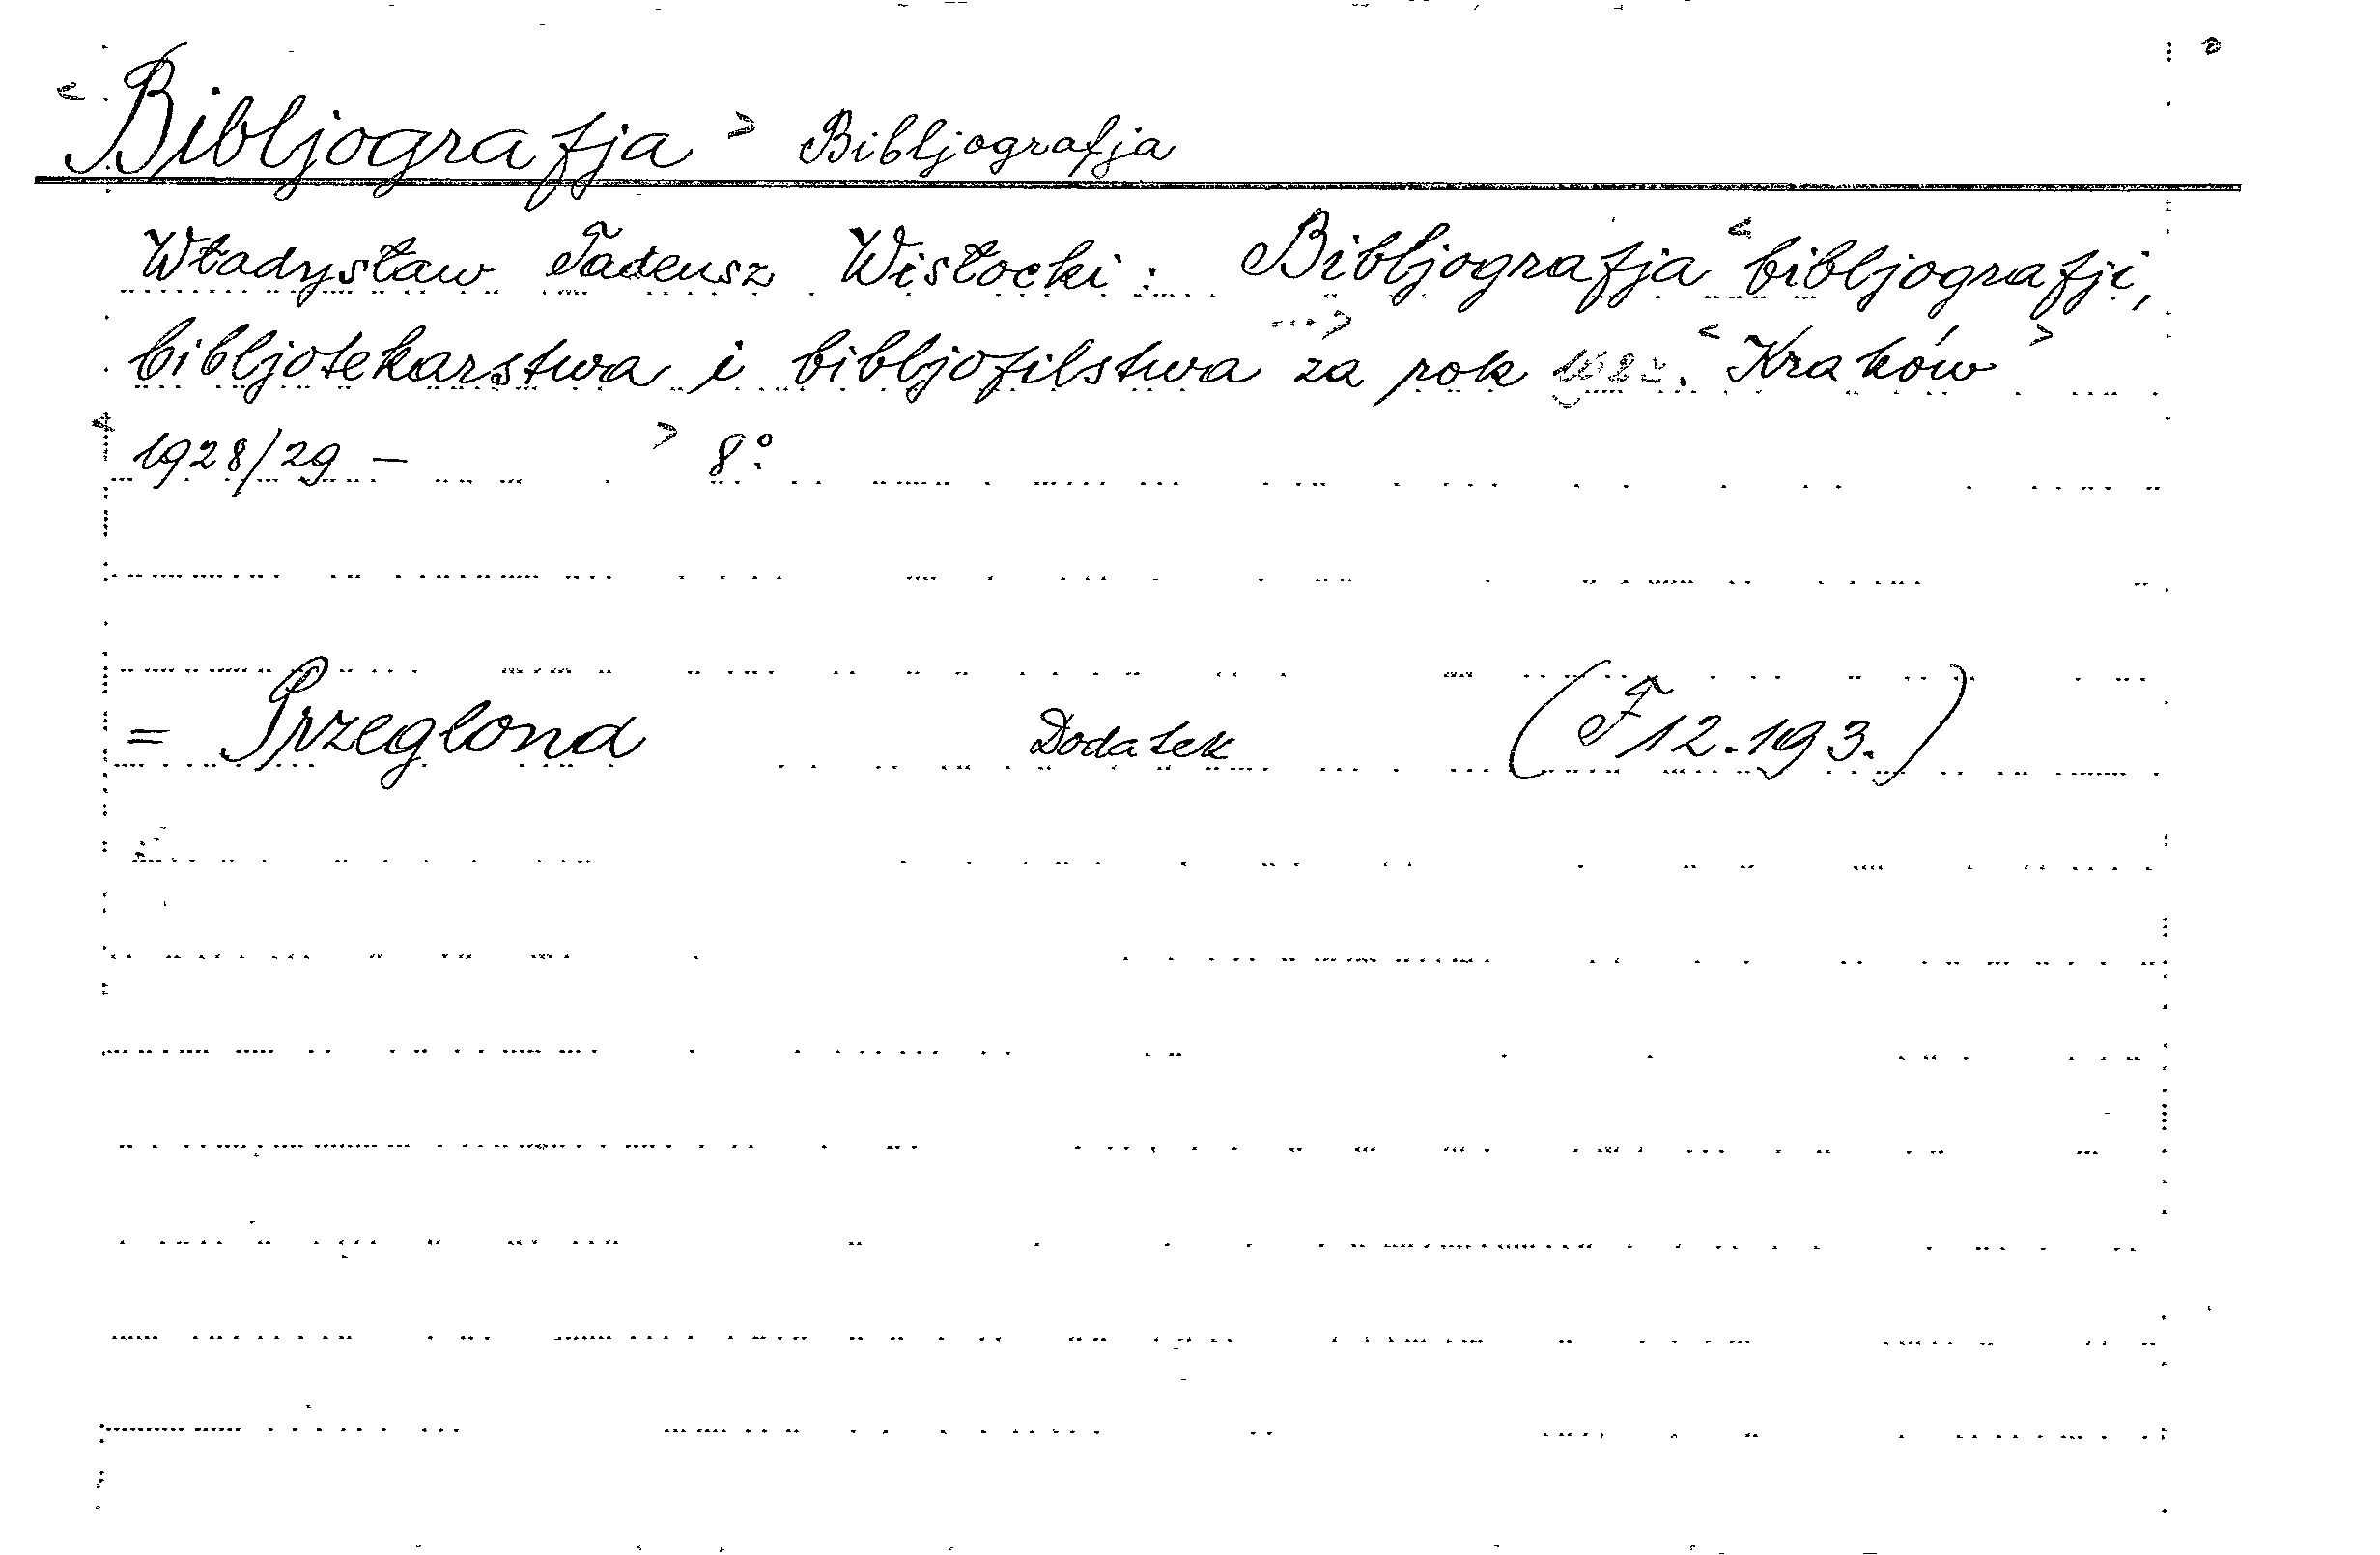 <Bibljografja> Bibljografja
Władysław Tadeusz Wisłocki: Bibljografja <bibljografji,
bibljotekarstwa i bibljofilstwa ...> za rok <Kraków>
<1928/29 – > 8°.
= Przeglond Dodatek (F 12.193.)